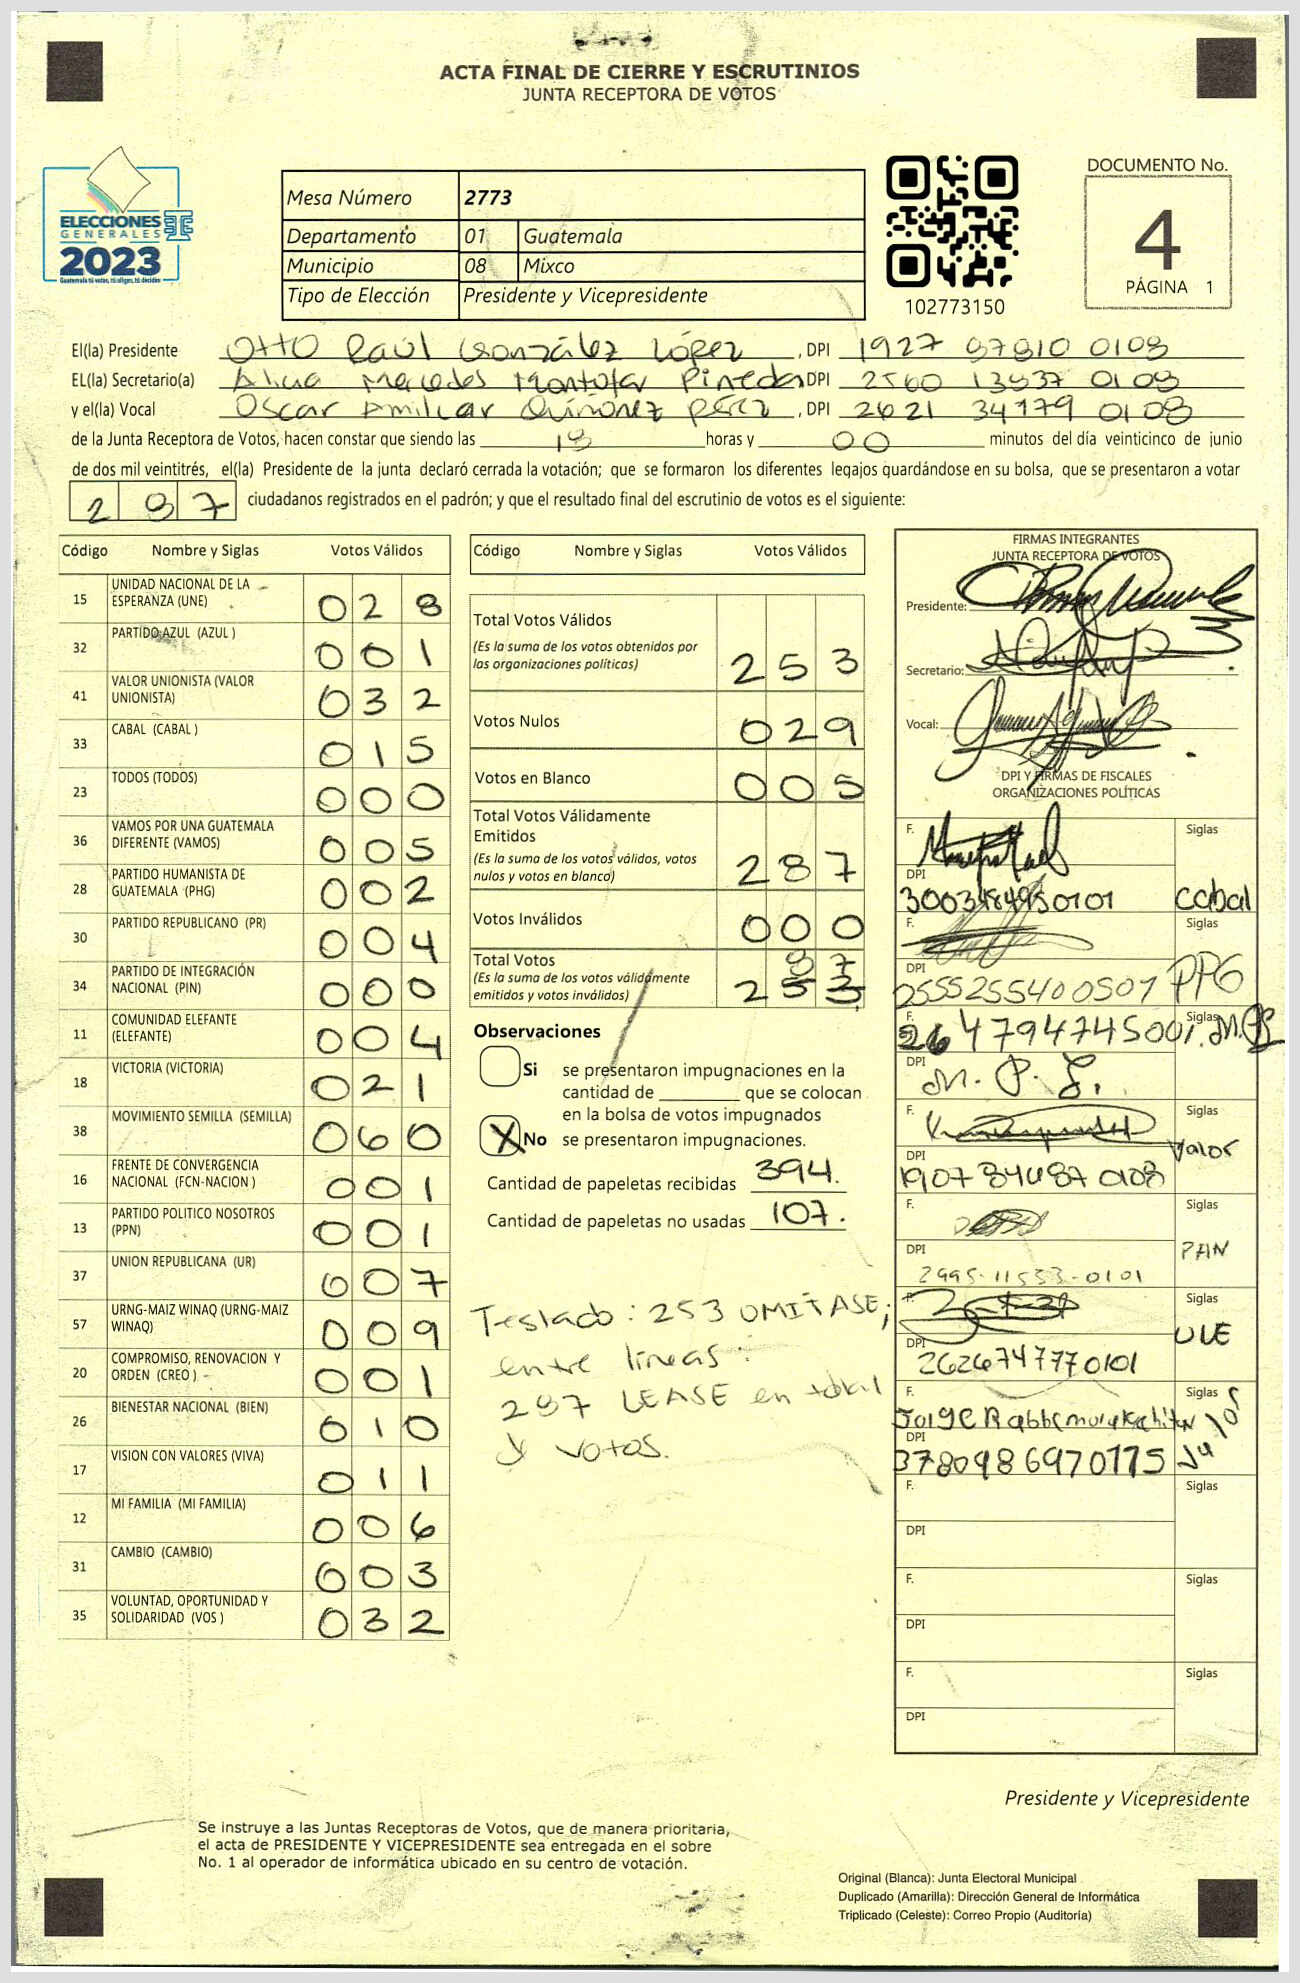 ACTA FINAL DE CIERRE Y ESCRUTINIOS
JUNTA RECEPTORA DE VOTOS
ELECCIONES
GENERALES
2023
Guatemala tú votas, tú eliges, tú decides
Mesa Número 2773
Departamento 01 Guatemala
Municipio 08 Mixco
Tipo de Elección Presidente y Vicepresidente
102773150
DOCUMENTO No.
4
PÁGINA 1
El(la) Presidente Otto Raúl González López, DPI 1927 87810 0108
EL(la) Secretario(a) Alicia Mercedes Montufar Pineda DPI 2560 13837 0108
y el(la) Vocal Oscar Amilcar Quiñonez Pérez, DPI 2621 34179 0108
de la Junta Receptora de Votos, hacen constar que siendo las 18 horas y 00 minutos del día veinticinco de junio
de dos mil veintitrés, el(la) Presidente de la junta declaró cerrada la votación; que se formaron los diferentes legajos guardándose en su bolsa, que se presentaron a votar
287 ciudadanos registrados en el padrón; y que el resultado final del escrutinio de votos es el siguiente:
Código Nombre y Siglas Votos Válidos
15 UNIDAD NACIONAL DE LA ESPERANZA (UNE) 028
32 PARTIDO AZUL (AZUL ) 001
41 VALOR UNIONISTA (VALOR UNIONISTA) 032
33 CABAL (CABAL ) 015
23 TODOS (TODOS) 000
36 VAMOS POR UNA GUATEMALA DIFERENTE (VAMOS) 005
28 PARTIDO HUMANISTA DE GUATEMALA (PHG) 002
30 PARTIDO REPUBLICANO (PR) 004
34 PARTIDO DE INTEGRACIÓN NACIONAL (PIN) 000
11 COMUNIDAD ELEFANTE (ELEFANTE) 004
18 VICTORIA (VICTORIA) 021
38 MOVIMIENTO SEMILLA (SEMILLA) 060
16 FRENTE DE CONVERGENCIA NACIONAL (FCN-NACION ) 001
13 PARTIDO POLITICO NOSOTROS (PPN) 001
37 UNION REPUBLICANA (UR) 007
57 URNG-MAIZ WINAQ (URNG-MAIZ WINAQ) 009
20 COMPROMISO, RENOVACION Y ORDEN (CREO ) 001
26 BIENESTAR NACIONAL (BIEN) 010
17 VISION CON VALORES (VIVA) 011
12 MI FAMILIA (MI FAMILIA) 006
31 CAMBIO (CAMBIO) 003
35 VOLUNTAD, OPORTUNIDAD Y SOLIDARIDAD (VOS ) 032
Código Nombre y Siglas Votos Válidos
Total Votos Válidos
(Es la suma de los votos obtenidos por
las organizaciones políticas) 253
Votos Nulos 029
Votos en Blanco 005
Total Votos Válidamente
Emitidos
(Es la suma de los votos válidos, votos
nulos y votos en blanco) 287
Votos Inválidos 000
Total Votos 87
(Es la suma de los votos válidamente
emitidos y votos inválidos) 253
Observaciones
Si se presentaron impugnaciones en la
cantidad de ________ que se colocan
en la bolsa de votos impugnados
X No se presentaron impugnaciones.
Cantidad de papeletas recibidas 394.
Cantidad de papeletas no usadas 107.
Testado: 253 OMITASE;
entre lineas:
287 LEASE en total
d votos.
FIRMAS INTEGRANTES
JUNTA RECEPTORA DE VOTOS
Presidente:
Secretario:
Vocal:
DPI Y FIRMAS DE FISCALES
ORGANIZACIONES POLÍTICAS
F. Siglas
DPI
3003484950101 Cabal
F. Siglas
DPI
2555255400507 PPG
F. Siglas
264794745001.
DPI M. P. L.
F. Siglas
DPI Valor
1907 84487 0108
F. Siglas
DPI PAN
2995-11533-0101
F. Siglas
DPI UNE
2626747770101
F. Siglas
Jorge
DPI
3780986970115
F. Siglas
DPI
F. Siglas
DPI
F. Siglas
DPI
Presidente y Vicepresidente
Se instruye a las Juntas Receptoras de Votos, que de manera prioritaria,
el acta de PRESIDENTE Y VICEPRESIDENTE sea entregada en el sobre
No. 1 al operador de informática ubicado en su centro de votación.
Original (Blanca): Junta Electoral Municipal
Duplicado (Amarilla): Dirección General de Informática
Triplicado (Celeste): Correo Propio (Auditoría)